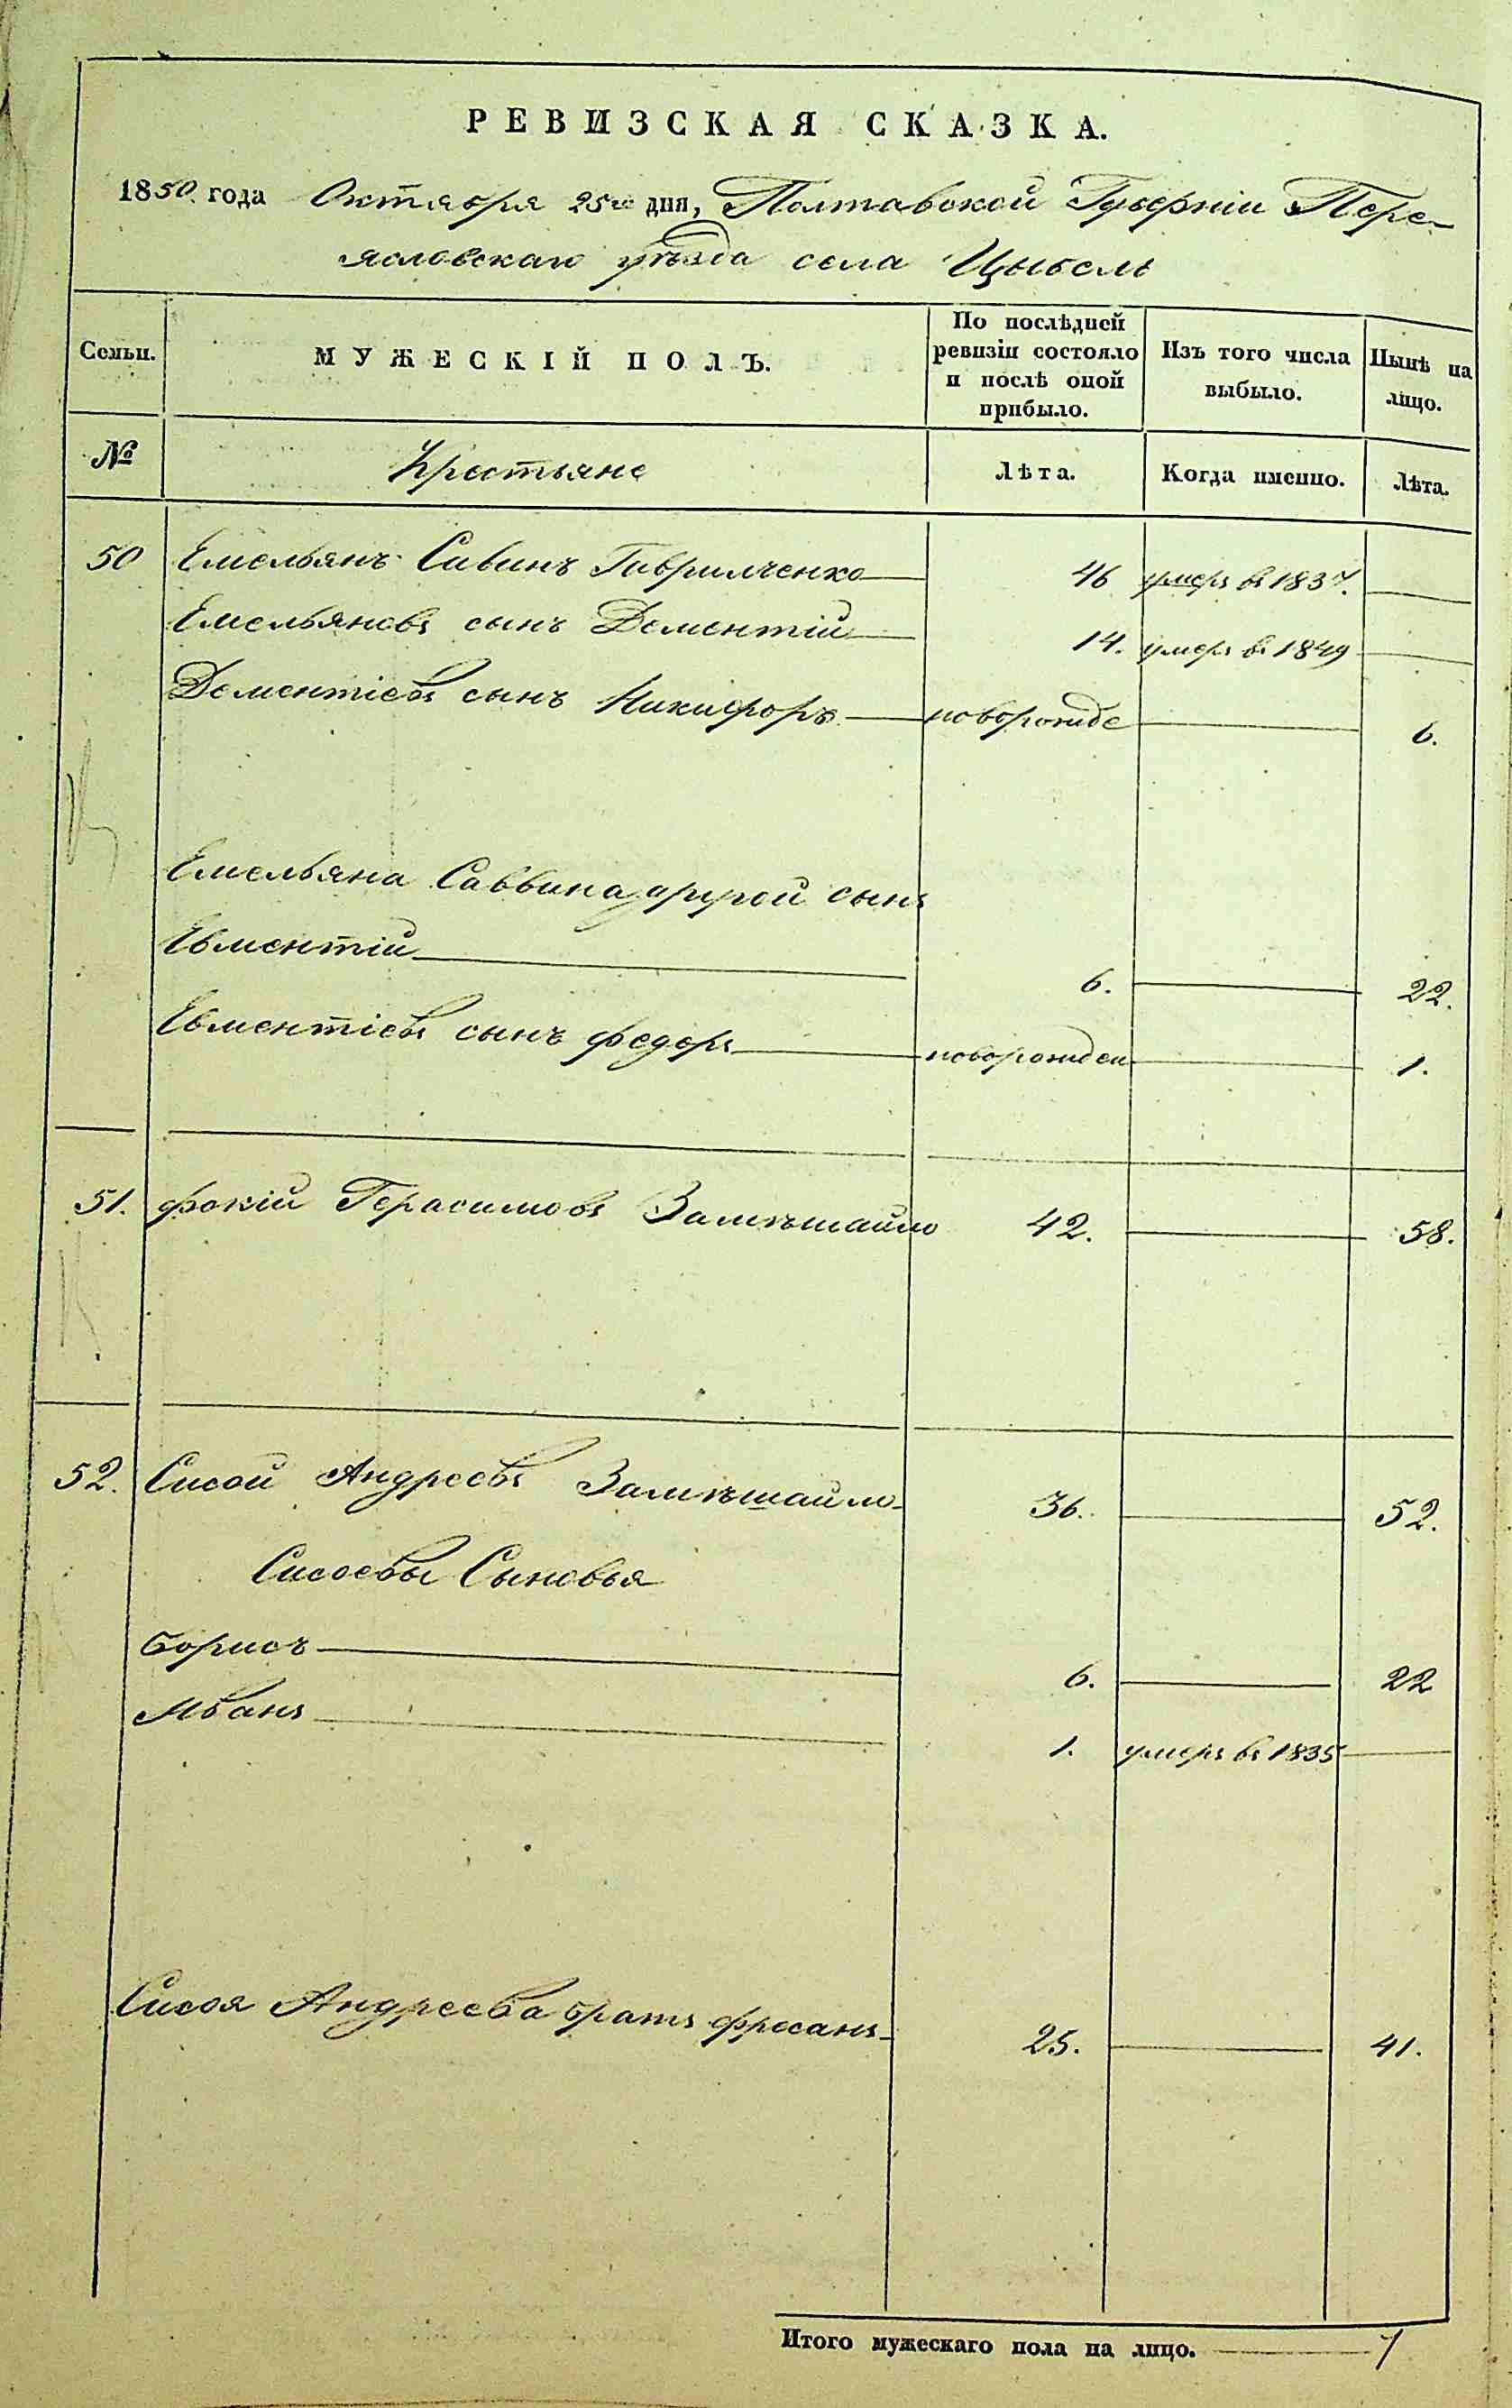 РЕВИЗСКАЯ СКАЗКА.
1850. года Октября 25го дня, Полтавской Губерніи Пере-
яславскаго уѣзда села Цыбель
Семьи.
МУЖЕСКІЙ ПОЛЪ.
По послѣдней
ревизіи состояло
и послѣ оной
прибыло.
Изъ того числа
выбыло.
Нынѣ на
лицо.
№ Крестьяне Лѣта. Когда именно. Лѣта.
50 Емельянъ Савинъ Гаврилченко 46 умеръ въ 1837.
Емельяновъ сынъ Дементій 14. умеръ въ 1849
Дементіевъ сынъ Никифоръ новорожде 6.
Емельяна Саввина другой сынъ
Евментій 6. 22.
Евментіевъ сынъ Федоръ новорожден 1.
51. Фокій Герасимовъ Замѣшайло 42. 58.
52. Сисой Андреевъ Замѣшайло 36. 52.
Сисоевы Сыновья
Борисъ 6. 22
Иванъ 1. умеръ въ 1835
Сисоя Андреева братъ Фресанъ 25. 41.
Итого мужескаго пола на лицо. 7